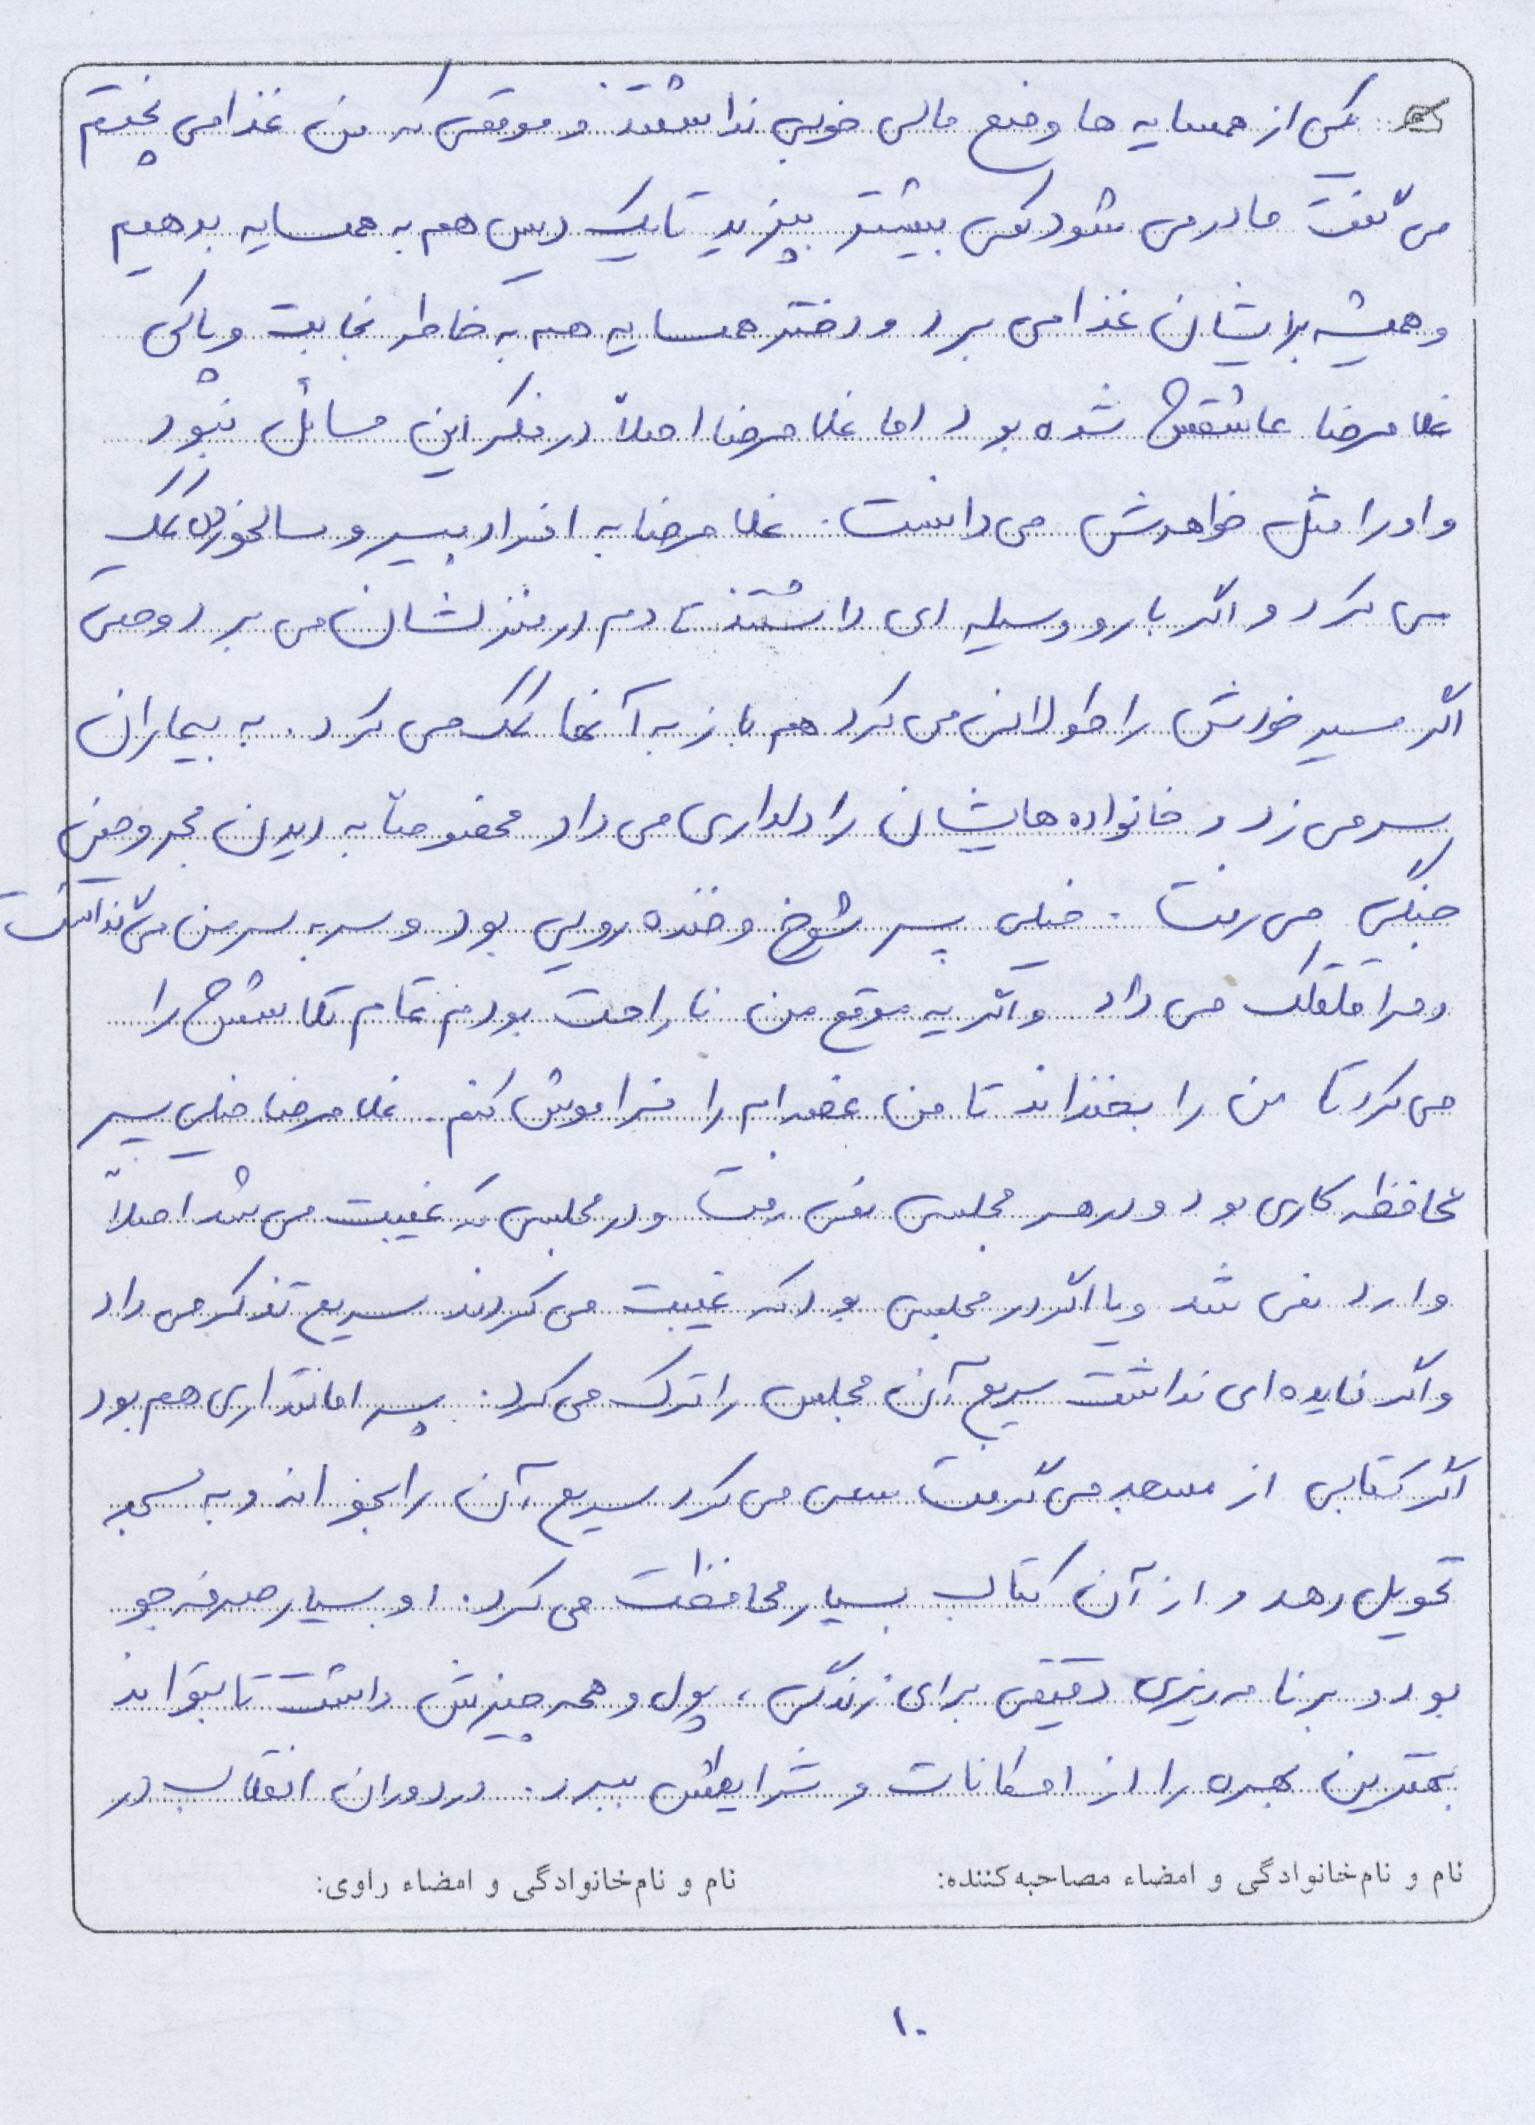 یکی از همسایه ها وضع مالی خوبی نداشتند و موقعی که من غذا می پختم
می گفت مادر می شود کمی بیشتر بپزید تا یک دیس هم به همسایه بدهیم
و همیشه برایشان غذا می برد و دختر همسایه هم به خاطر نجابت و پاکی
غلامرضا عاشقش شده بود اما غلامرضا اصلاً در فکر این مسائل نبود
و او را مثل خواهرش می دانست. غلامرضا به افراد پیر و سالخورده کمک
می کرد و اگر بار و وسیله ای داشتند تا دم در منزلشان می برد و حتی
اگر مسیر خودش را طولانی می کرد هم باز به آنها کمک می کرد. به بیماران
سر می زد و خانواده هایشان را دلداری می داد مخصوصاً به دیدن مجروحین
جنگی می رفت. خیلی پسر شوخ و خنده رویی بود و سر به سر من می گذاشت
و مرا قلقلک می داد و اگر یه موقع من ناراحت بودم تمام تلاشش را
می کرد تا من را بخنداند تا من غصه ام را فراموش کنم. غلامرضا خیلی پسر
محافظه کاری بود و در هر مجلسی نمی رفت و در مجلسی که غیبت می شد اصلاً
وارد نمی شد و یا اگر در مجلسی بود که غیبت می کردند سریع تذکر می داد
و اگر فایده ای نداشت سریع آن مجلس را ترک می کرد. پسر امانتداری هم بود
اگر کتابی از مسجد می گرفت سعی می کرد سریع آن را بخواند و به مسجد
تحویل دهد و از آن کتاب بسیار محافظت می کرد. او بسیار صرفه جو
بود و برنامه ریزی دقیقی برای زندگی، پول و همه چیزش داشت تا بتواند
بهترین بهره را از امکانات و شرایطش ببرد. در دوران انقلاب در
نام و نام‌خانوادگی و امضاء مصاحبه‌کننده: نام و نام‌خانوادگی و امضاء راوی:
۱۰